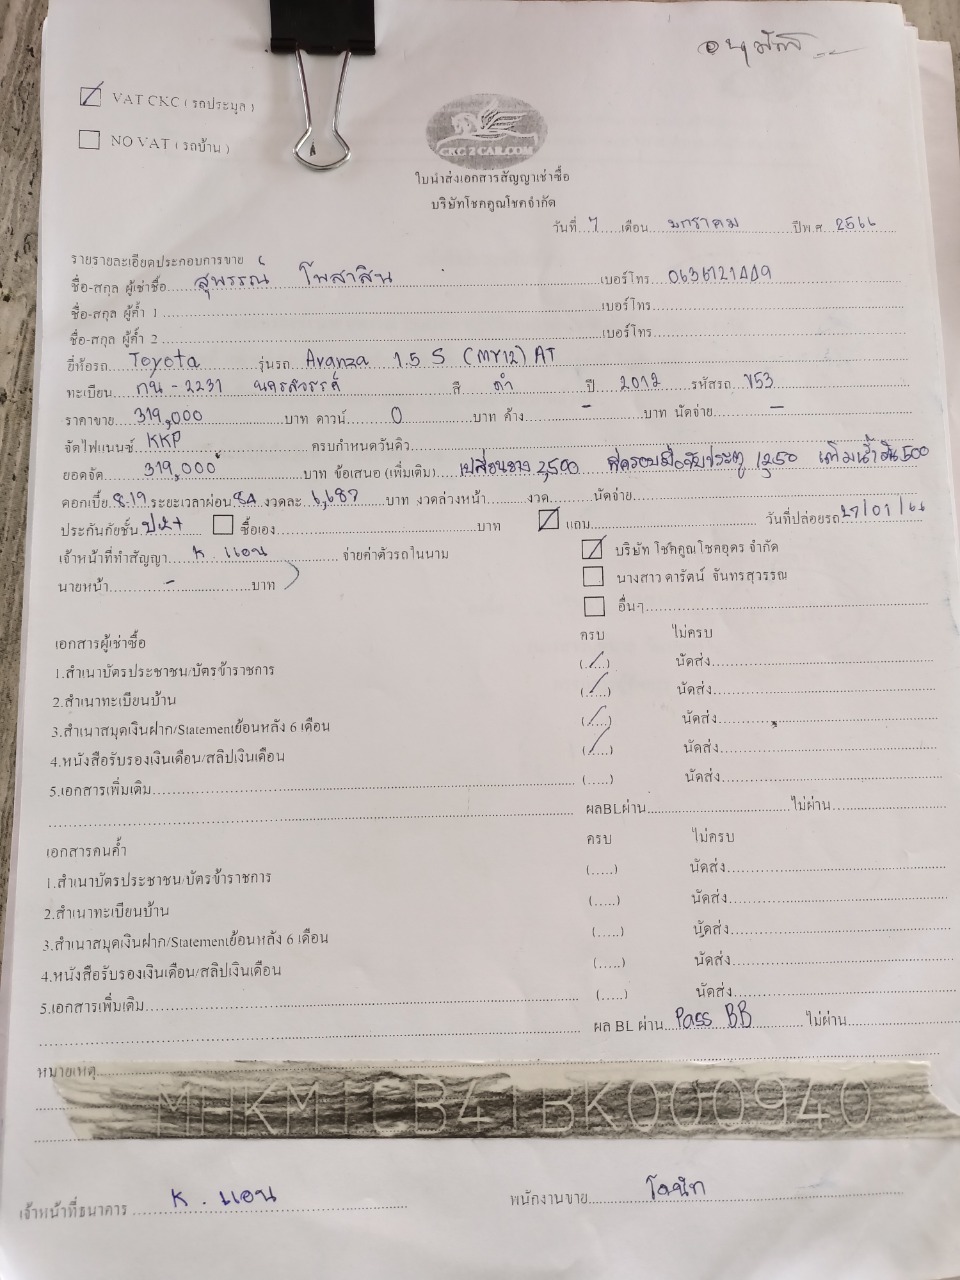 อนุมัติ
VAT CKC ( รถประมูล )
NO VAT ( รถบ้าน )
CKC 2 CAR.COM
ใบนำส่งเอกสารสัญญาเช่าซื้อ
บริษัทโชคคูณโชคจำกัด
วันที่ 7 เดือน มกราคม ปีพ.ศ. 2566
รายรายละเอียดประกอบการขาย
ชื่อ-สกุล ผู้เช่าซื้อ สุพรรณ์ โพสาสิน เบอร์โทร
ชื่อ-สกุล ผู้ค้ำ 1 เบอร์โทร
ชื่อ-สกุล ผู้ค้ำ 2 เบอร์โทร
ยี่ห้อรถ Toyota รุ่นรถ Avanza 1.5 S (MY12) AT
ทะเบียน กน - 2231 นครสวรรค์ สี ดำ ปี 2012 รหัสรถ V53
ราคาขาย 319,000 บาท ดาวน์ 0 บาท ค้าง - บาท นัดจ่าย -
จัดไฟแนนซ์ KKP ครบกำหนดวันคิว
ยอดจัด 319,000 บาท ข้อเสนอ (เพิ่มเติม) เปลี่ยนยาง 2,500 ที่ครอบมือจับประตู 1250 เติมน้ำมัน 500
ดอกเบี้ย 8.19 ระยะเวลาผ่อน 84 งวดละ 6,687 บาท งวดล่วงหน้า งวด นัดจ่าย
ประกันภัยชั้น ป2+ ซื้อเอง บาท แถม วันที่ปล่อยรถ 27/01/66
เจ้าหน้าที่ทำสัญญา K. แอน จ่ายค่าตัวรถในนาม บริษัท โชคคูณโชคอุดร จำกัด
นายหน้า - บาท นางสาว ดารัตน์ จันทรสุวรรณ
อื่นๆ
เอกสารผู้เช่าซื้อ ครบ ไม่ครบ
1.สำเนาบัตรประชาชน/บัตรข้าราชการ (../..) นัดส่ง
2.สำเนาทะเบียนบ้าน (../..) นัดส่ง
3.สำเนาสมุดเงินฝาก/Statementย้อนหลัง 6 เดือน (../..) นัดส่ง
4.หนังสือรับรองเงินเดือน/สลิปเงินเดือน (../..) นัดส่ง
5.เอกสารเพิ่มเติม (.....) นัดส่ง
ผลBLผ่าน ไม่ผ่าน
เอกสารคนค้ำ ครบ ไม่ครบ
1.สำเนาบัตรประชาชน/บัตรข้าราชการ (.....) นัดส่ง
2.สำเนาทะเบียนบ้าน (.....) นัดส่ง
3.สำเนาสมุดเงินฝาก/Statementย้อนหลัง 6 เดือน (.....) นัดส่ง
4.หนังสือรับรองเงินเดือน/สลิปเงินเดือน (.....) นัดส่ง
5.เอกสารเพิ่มเติม (.....) นัดส่ง
ผล BL ผ่าน Pass BB ไม่ผ่าน
หมายเหตุ
MHKM1CB41BK000940
เจ้าหน้าที่ธนาคาร K. แอน พนักงานขาย